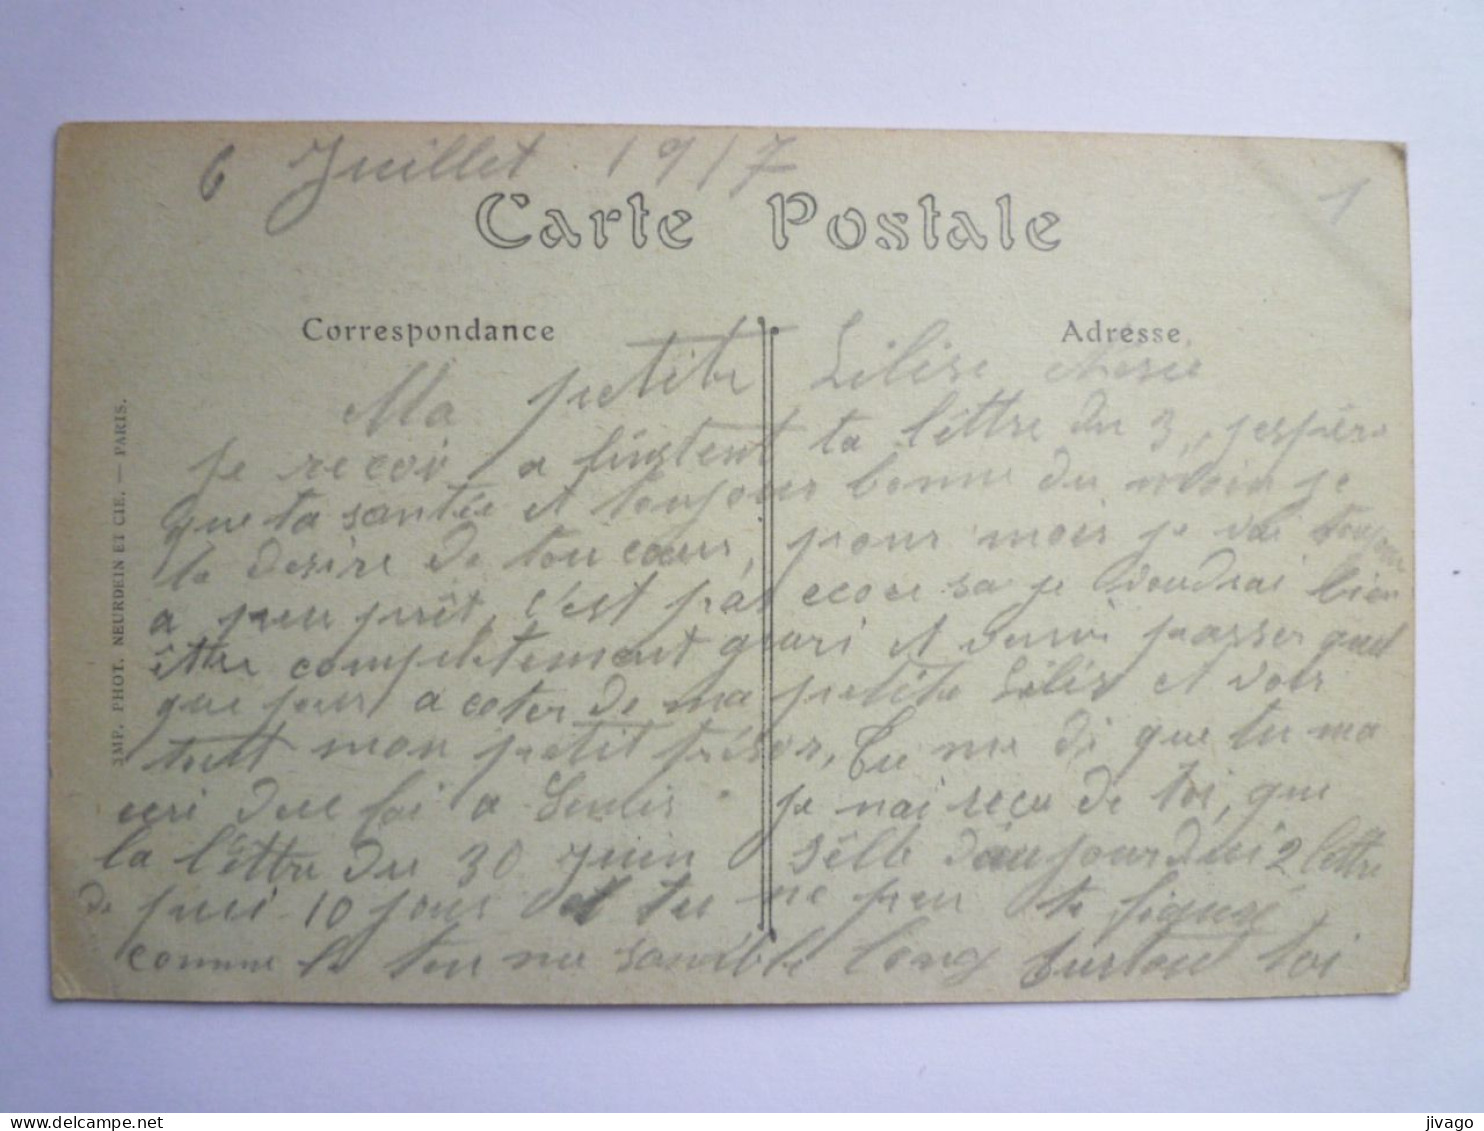 6 Juillet 1917
1
Carte Postale
Correspondance
Adresse
Ma petite Lilise cherie
Je recoi a linstent ta lêttre du 3, jespére
que ta santée et toujour bonne du moin je
le desire de tou coeur, pour moi je vai toujour
a peu prêt, c'est pas ecore sa je voudrai bien
être completement gueri et venir passer quel
que jour a coter de ma petite Lilise et voir
tout mon petit trésor, Tu me di que tu ma
ecri deu foi a Senlis je nai recu de toi, que
la lêttre du 30 juin sêlle daujourdui 2 lettre
de pui 10 jour et tu ne peu te figuré
comme le ten me semble long surtou toi
IMP. PHOT. NEURDEIN ET CIE. — PARIS.
jivago